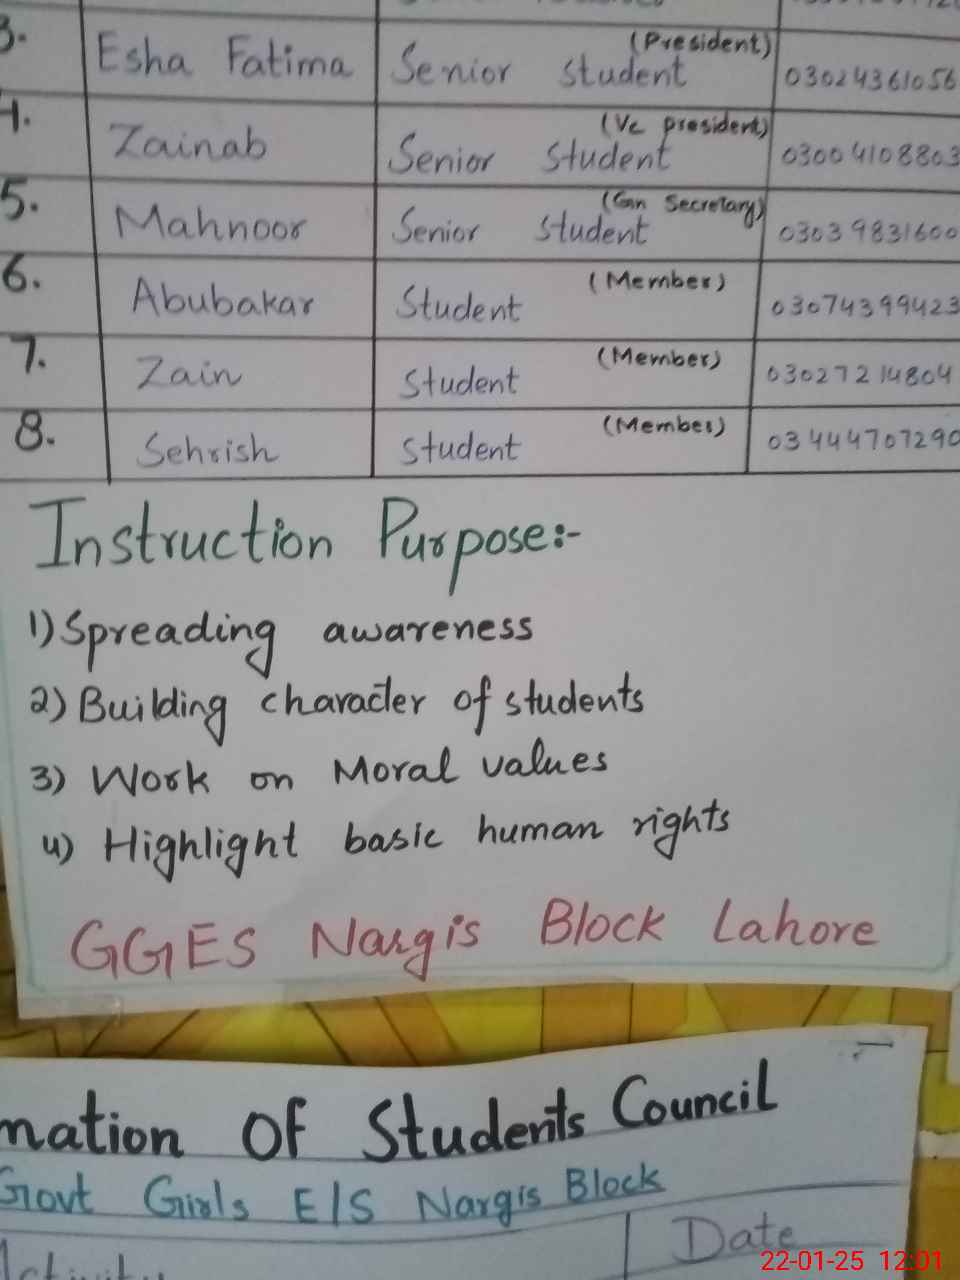 3. Esha Fatima Senior Student (President) 03024361056
4. Zainab Senior Student (Vc president) 03004108803
5. Mahnoor Senior Student (Gn Secretary) 03039831600
6. Abubakar Student (Member) 03074399423
7. Zain Student (Member) 03027214804
8. Sehrish Student (Member) 03444707290
Instruction Purpose:-
1) Spreading awareness
2) Building character of students
3) Work on Moral values
4) Highlight basic human rights
GGES Nargis Block Lahore
mation Of Students Council
Govt Girls E/S Nargis Block
Activity Date
22-01-25 12:01